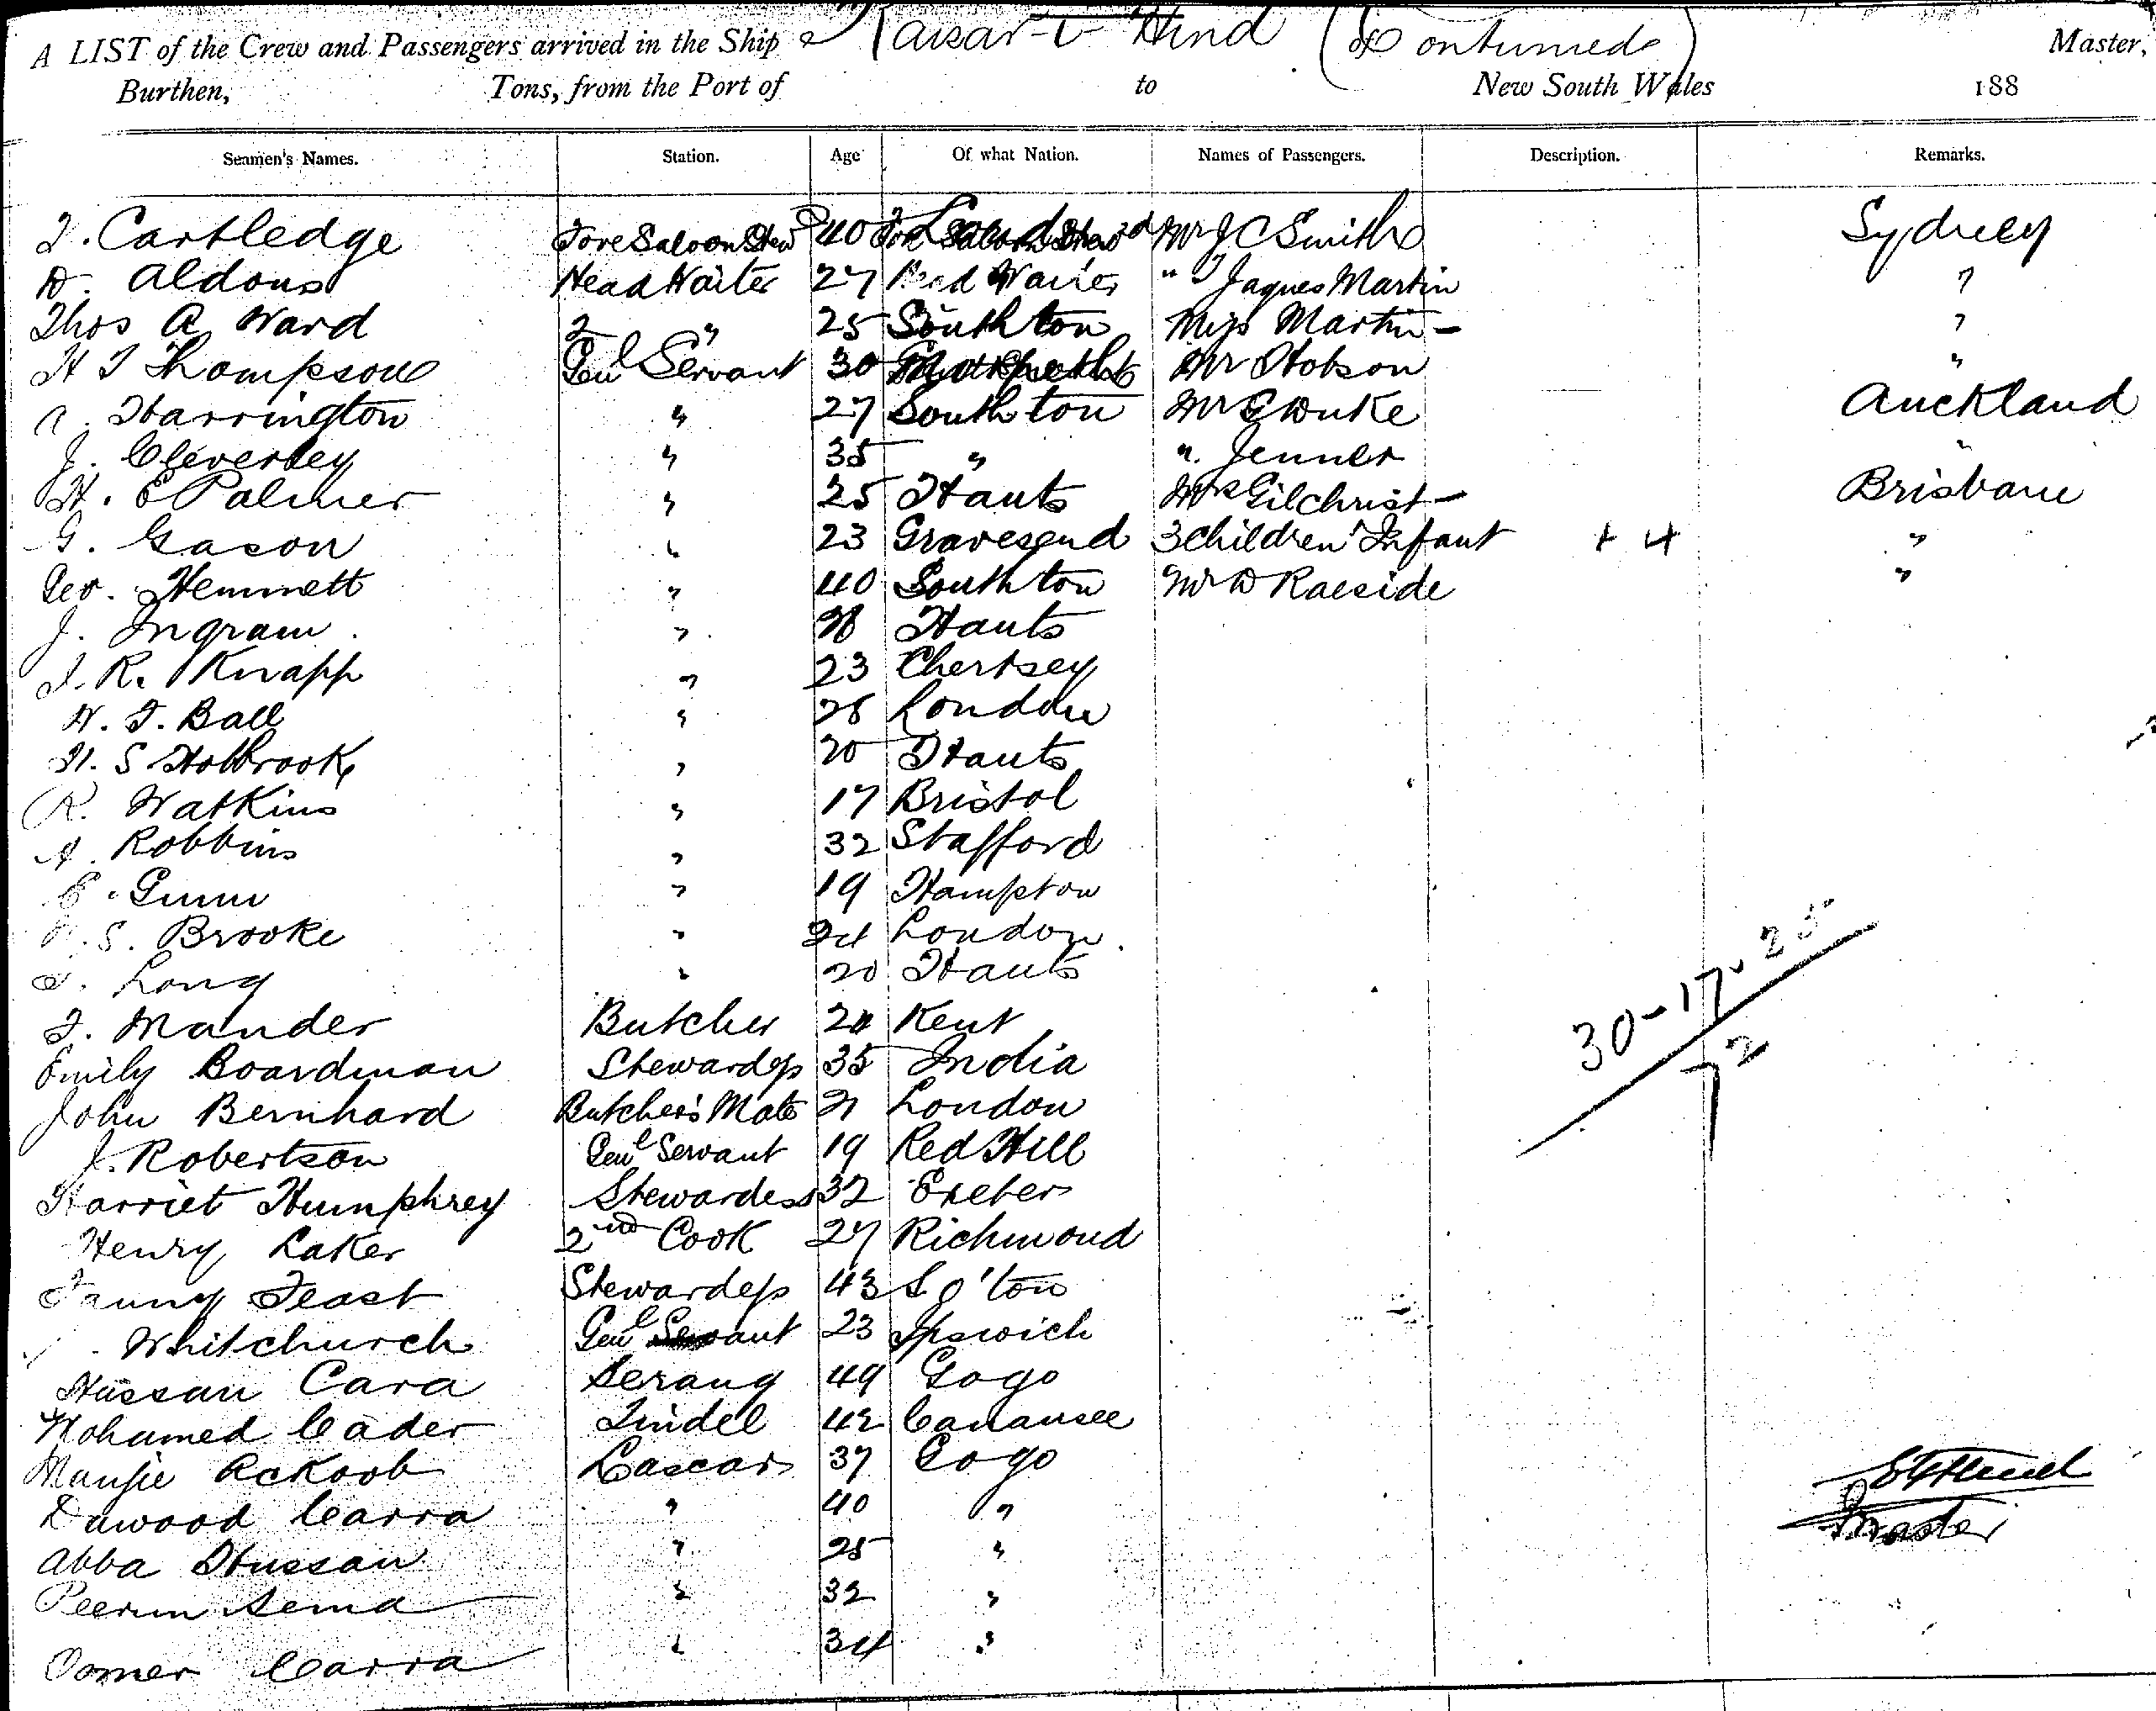 A LIST of the Crew and Passengers arrived in the Ship Kaisar-i-Hind (Continued) Master,
Burthen, Tons, from the Port of to New South Wales 188
Seamen's Names. Station. Age Of what Nation. Names of Passengers. Description. Remarks.
Cartledge Fore Saloon Stewd 40 London Mr J C Smith Sydney
D. Aldous Head Waiter 27 Head Waiter " Jaques Martin "
Thos A Ward 2 " 25 Southton Miss Martin "
H T Thompson Genl Servant 30 Mr Hobson "
A. Harrington " 27 Southton Mr G Duke Auckland
J. Cleverley " 35 " " Jenner "
H. E Palmer " 25 Hants Mrs Gilchrist Brisbane
G. Gason " 23 Gravesend 3 Children + Infant + 4 "
Geo. Hemmett " 40 Southton Mr D Raeside "
J. Ingram " 28 Hants
J. R. Knapp " 23 Chertsey
W. T. Ball " 28 London
H. S Holbrook " 20 Hants
R. Watkins " 17 Bristol
A. Robbins " 32 Stafford
E. Gunn " 19 Hampton
S. Brooke " 24 London
Long " 20 Hants
Mander Butcher 24 Kent
Emily Boardman Stewardess 35 India
John Bernhard Butcher's Mate 21 London
J. Robertson Genl Servant 19 Red Hill
Harriet Humphrey Stewardess 32 Exeter
Henry Laker 2nd Cook 27 Richmond
Fanny Feast Stewardess 43 So'ton
Whitchurch Genl Servant 23 Ipswich
Hassan Cara Serang 49 Gogo
Mohamed Cader Tindel 42 Canansee
Mansie Ackoob Lascar 37 Gogo
Dawood Carra " 40 "
Abba Hussan " 25 "
Peerun Sema " 32 "
Oomer Carra " 34 "
30-17-25
72
Master